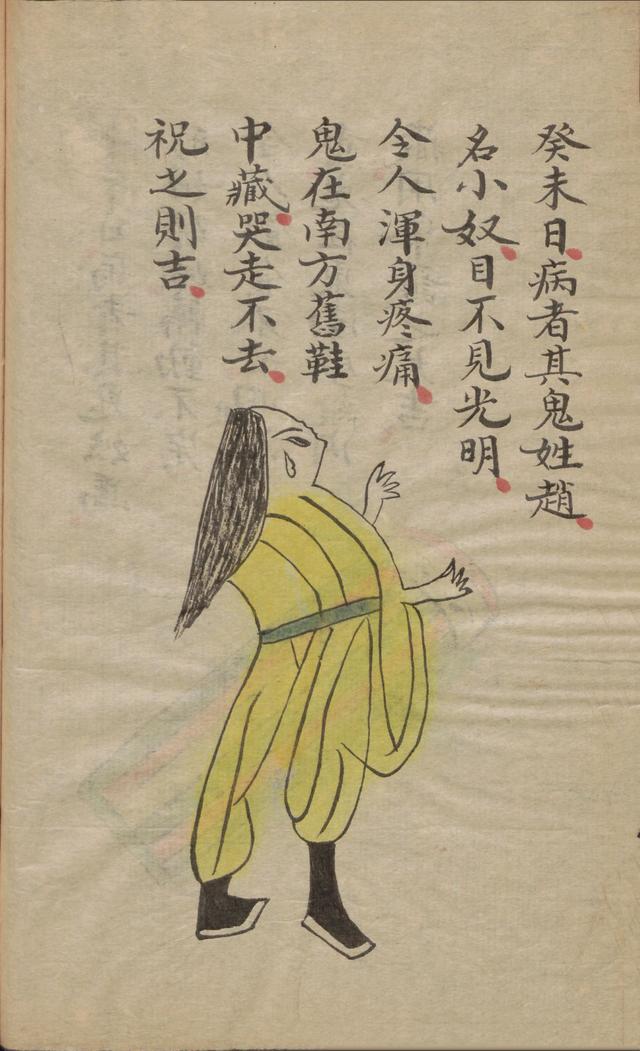 癸未日病者其鬼姓趙
名小奴目不見光明
令人渾身疼痛
鬼在南方舊鞋
中藏哭走不去
祝之則吉